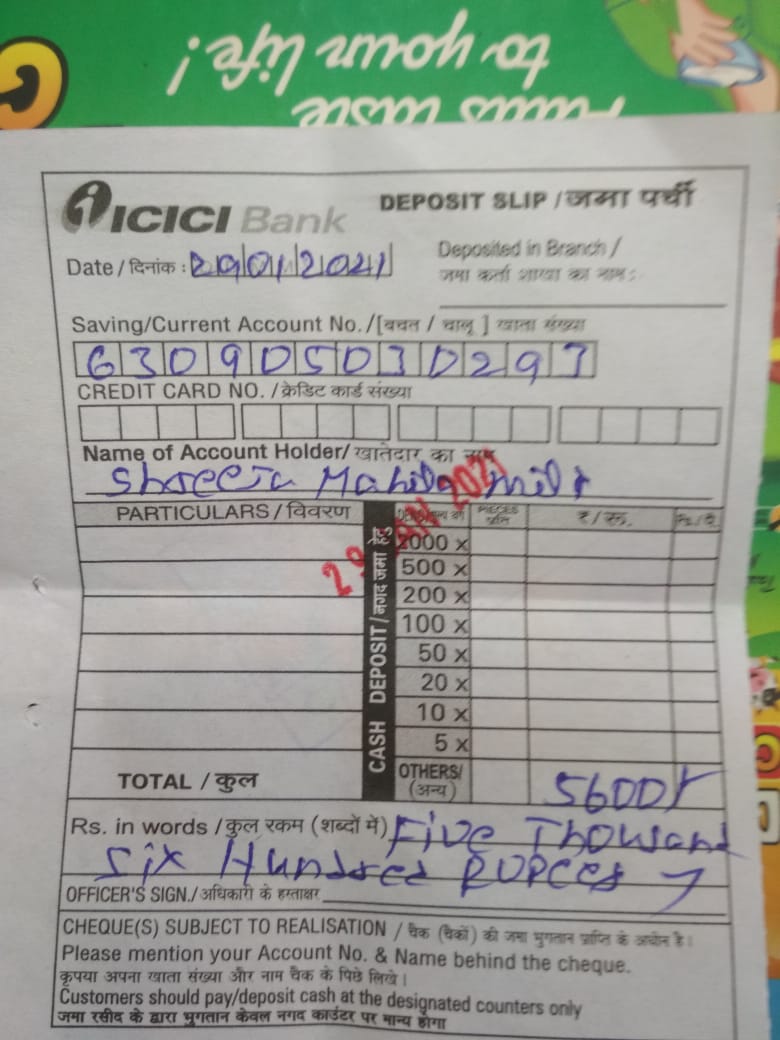 to your life!
ICICI Bank
DEPOSIT SLIP / जमा पर्ची
Date / दिनांक : 29/01/2021
Deposited in Branch /
जमा कर्ता शाखा का नाम :
Saving/Current Account No. /[बचत / चालू ] खाता संख्या
630905030297
CREDIT CARD NO. / क्रेडिट कार्ड संख्या
Name of Account Holder/ खातेदार का नाम
Shreeja Mahila milk
PARTICULARS / विवरण
PIECES
₹ / रू.
29 JAN 2021
CASH DEPOSIT/ नगद जमा हेतु
2000 x
500 x
200 x
100 x
50 x
20 x
10 x
5 x
TOTAL / कुल
OTHERS/
(अन्य)
5600/
Rs. in words / कुल रकम (शब्दों में) Five Thousand
Six Hundred Rupees
OFFICER'S SIGN./ अधिकारी के हस्ताक्षर
CHEQUE(S) SUBJECT TO REALISATION / चैक (चैकों) की जमा भुगतान प्राप्ति के अधीन है।
Please mention your Account No. & Name behind the cheque.
कृपया अपना खाता संख्या और नाम चैक के पिछे लिखे।
Customers should pay/deposit cash at the designated counters only
जमा रसीद के द्वारा भुगतान केवल नगद काउंटर पर मान्य होगा